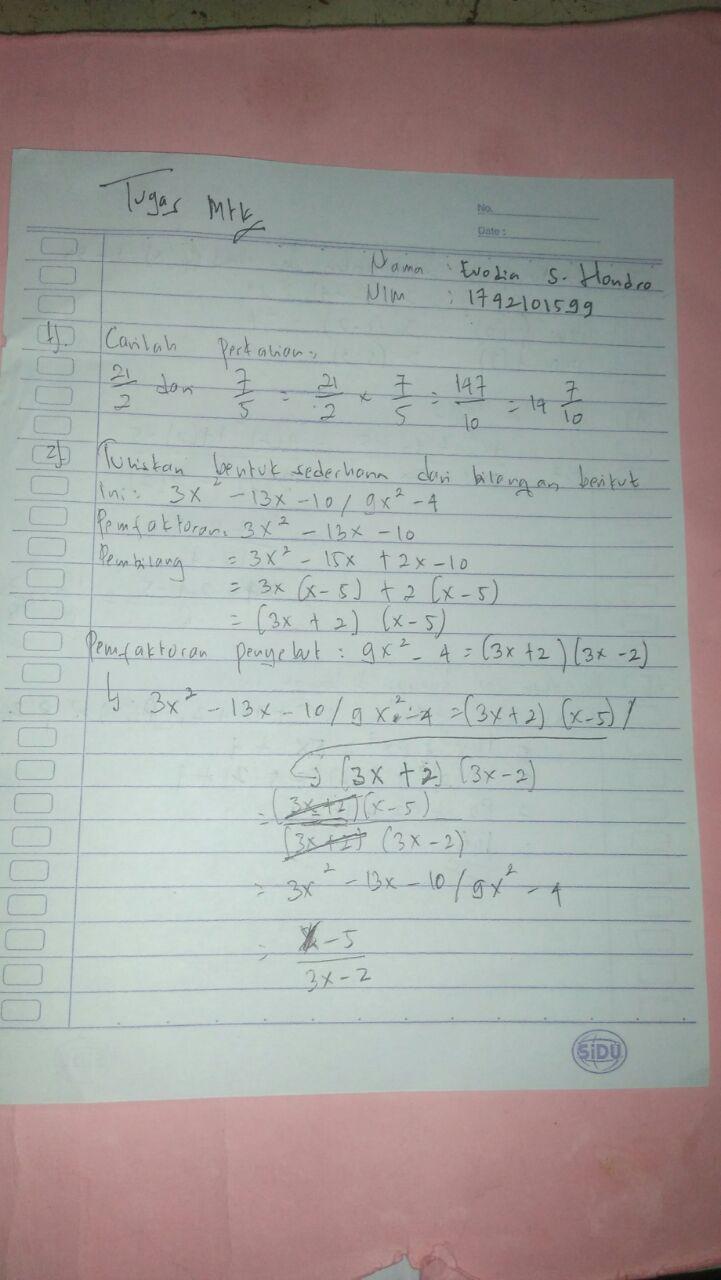 Tugas MTK
No.
Date :
Nama : Evodia S. Hondro
NIM : 1742101599
1). Carilah Perkalian:
21/2 dan 7/5 = 21/2 x 7/5 = 147/10 = 14 7/10
2). Tuliskan bentuk sederhana dari bilangan berikut
ini: 3x² - 13x - 10 / 9x² - 4
Pemfaktoran: 3x² - 13x - 10
Pembilang = 3x² - 15x + 2x - 10
= 3x (x-5) + 2 (x-5)
= (3x + 2) (x-5)
Pemfaktoran penyebut : 9x² - 4 = (3x+2) (3x-2)
↳ 3x² - 13x - 10 / 9x² - 4 = (3x+2) (x-5) /
(3x + 2) (3x-2)
= (3x+2)(x-5)
(3x+2) (3x-2)
= 3x² - 13x - 10 / 9x² - 4
= x-5
3x-2
SiDU